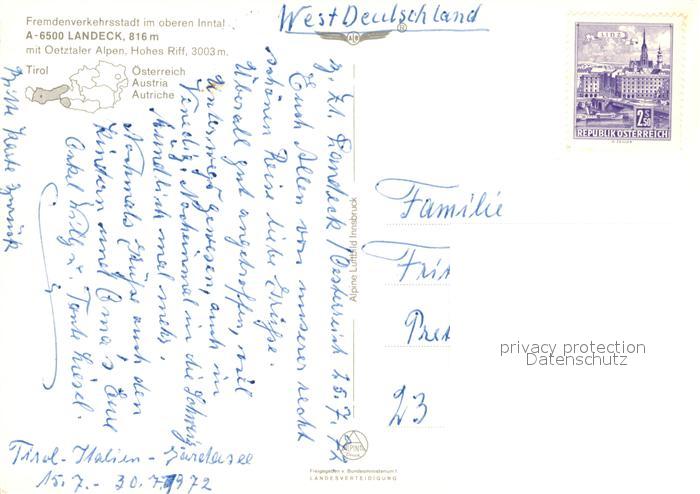 Fremdenverkehrsstadt im oberen Inntal
A-6500 LANDECK, 816 m
mit Oetztaler Alpen, Hohes Riff, 3003 m.
Tirol
Österreich
Austria
Autriche
West Deutschland
LINZ
2.50
S
REPUBLIK ÖSTERREICH
z. Zt. Landeck/Oesterreich 25.7.72
Euch Allen von unserer recht
schönen Reise liebe Grüße.
Überall gut angetroffen, viel
unterwegs gewesen, auch in
Venedig. Nocheinmal in die Schweiz
mündlich mal mehr.
Nochmals Grüße auch den
Kindern und Oma's Eure
Onkel Willy u. Tante Liesel.
Bitte Karte zurück
Tirol-Italien-Gardasee
15.7.-30.7.1972
Alpine Luftbild Innsbruck
Familie
Frit
Pret
23
privacy protection
Datenschutz
ALPINE
Freigegeben v. Bundesministerium f.
LANDESVERTEIDIGUNG